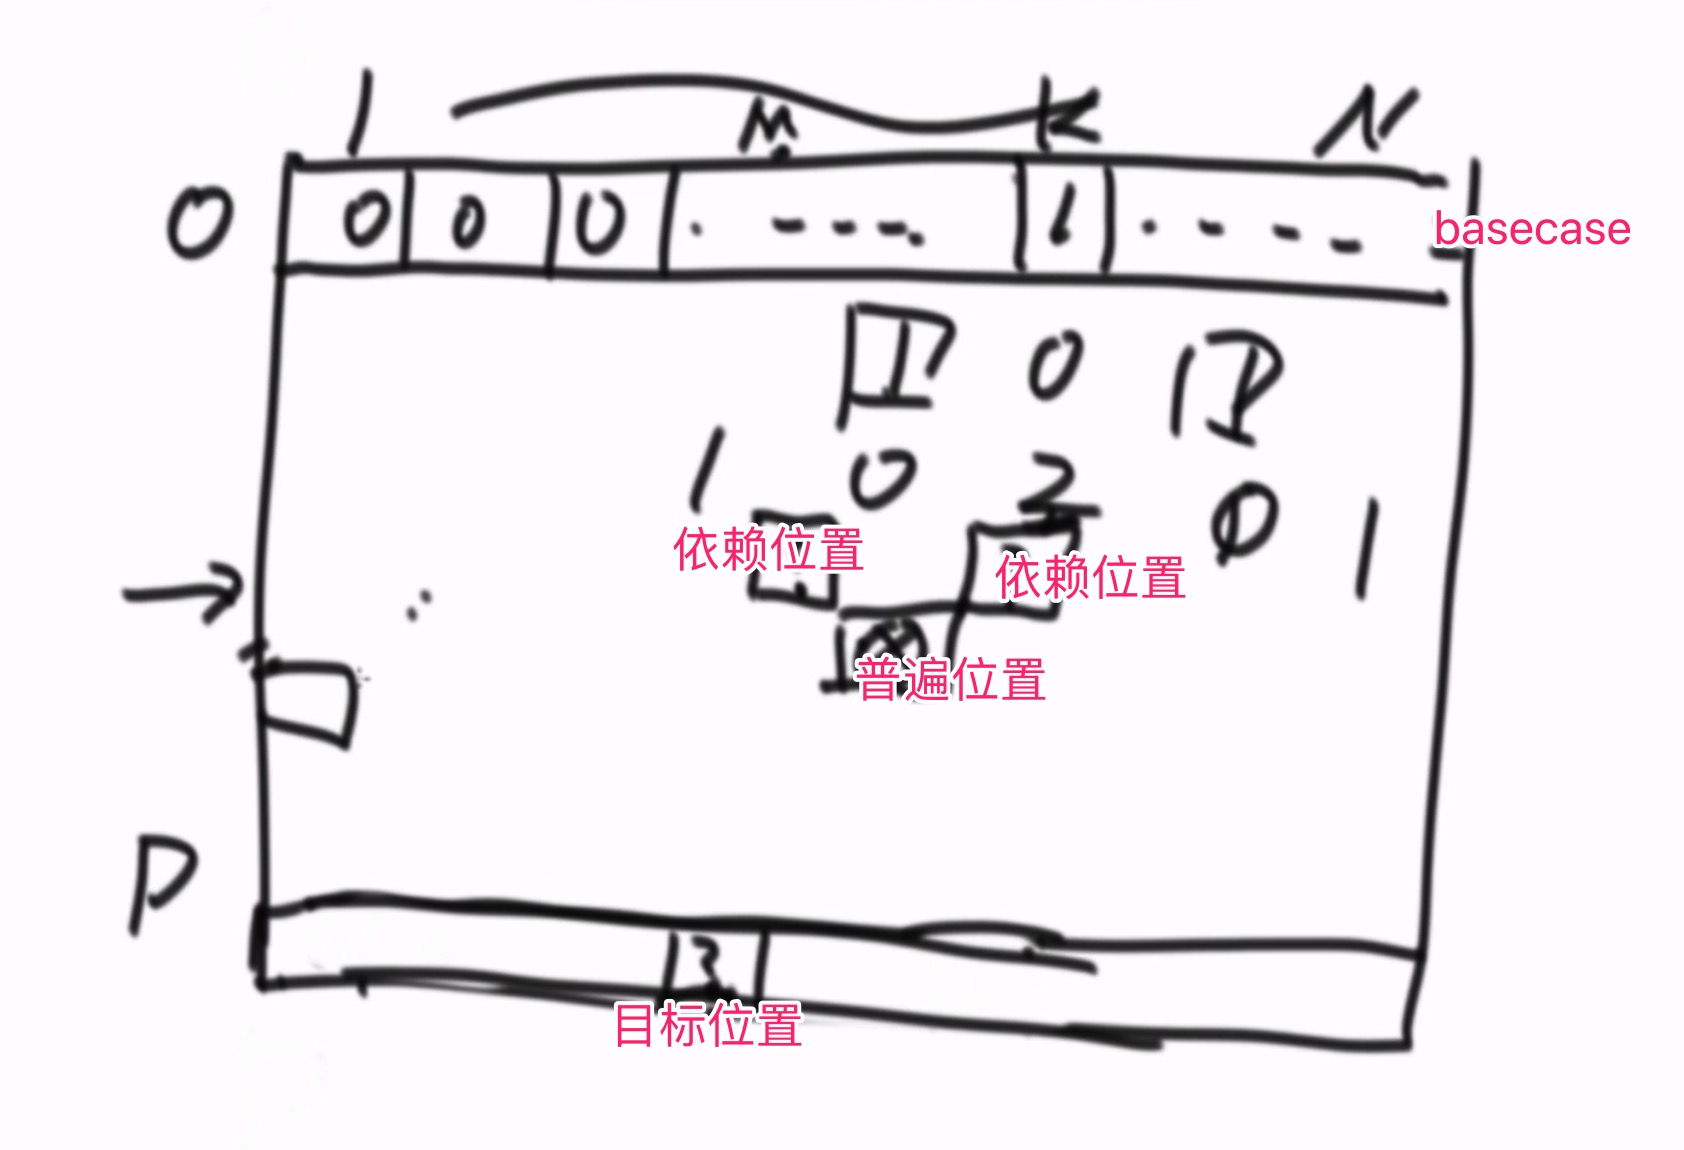 1 M K N
0 0 0 0 1 basecase
1 0 1
1 0 2 0 1
依赖位置 依赖位置
普遍位置
P
3
目标位置